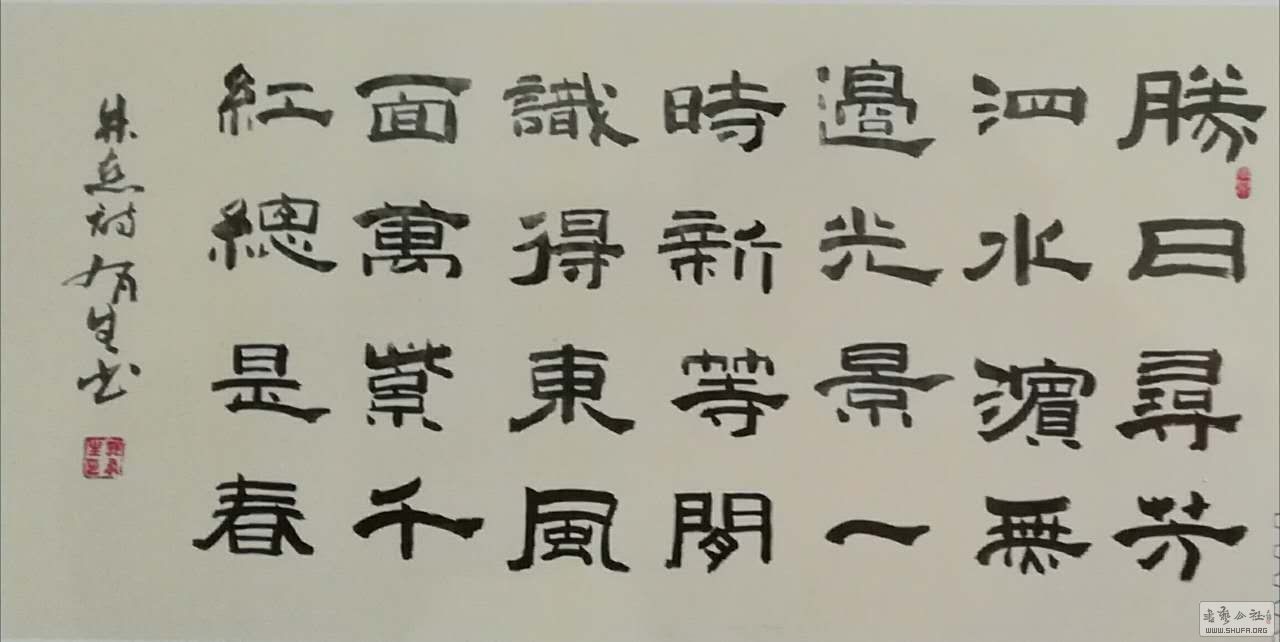 勝日尋芳
泗水濵無
邊光景一
時新等閒
識得東風
面萬紫千
紅總是春
朱熹詩 有生书
WWW.SHUFA.ORG